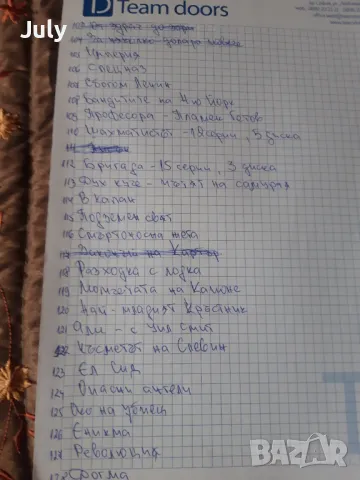 July
Team doors
105 Империя
106 Спецназ
107 Сбогом Ленин
108 Бандитите на Ню Йорк
109 Професора - Пламен Готов
110 Шахматистът - 18 серии, 5 диска
112 Бригада - 15 серии, 3 диска
113 Дух куче - пътят на самурая
114 В капан
115 Подземен свят
116 Смъртоносна жега
118 Разходка с лодка
119 Момчетата на Калине
120 Най-младият Красник
121 Али - с Уил Смит
122 Късметът на Слевин
123 Ел Сид
124 Опасни ангели
125 Око на убиец
126 Енигма
127 Революция
128 Догма
BAZAR.bg